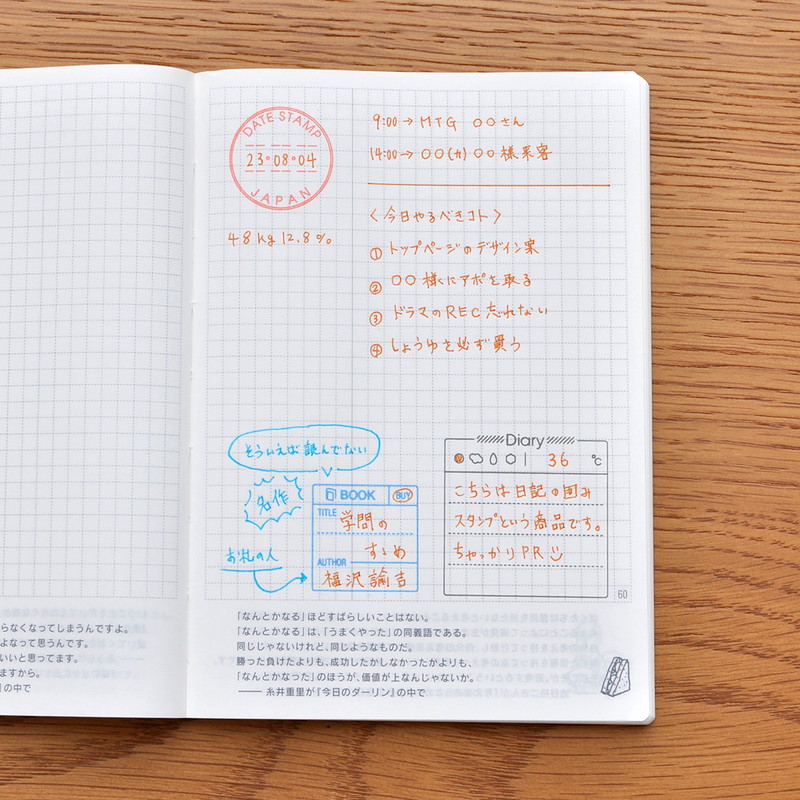 DATE STAMP
23・08・04
JAPAN
48kg 12.8%
9:00→MTG 〇〇さん
14:00→〇〇(カ)〇〇様来客
〈今日やるべきコト〉
① トップページのデザイン案
② 〇〇様にアポを取る
③ ドラマのREC忘れない
④ しょうゆを必ず買う
そういえば読んでない
名作
お札の人
BOOK BUY
TITLE 学問の
すゝめ
AUTHOR
福沢諭吉
Diary
36 ℃
こちらは日記の囲み
スタンプという商品です。
ちゃっかりPR
60
「なんとかなる」ほどすばらしいことはない。
「なんとかなる」は、「うまくやった」の同義語である。
同じじゃないけれど、同じようなものだ。
勝った負けたよりも、成功したかしなかったかよりも、
「なんとかなった」のほうが、価値が上なんじゃないか。
── 糸井重里が『今日のダーリン』の中で
らなくなってしまうんですよ。
よなって思うんです。
いいと思ってます。
ますから。
』の中で